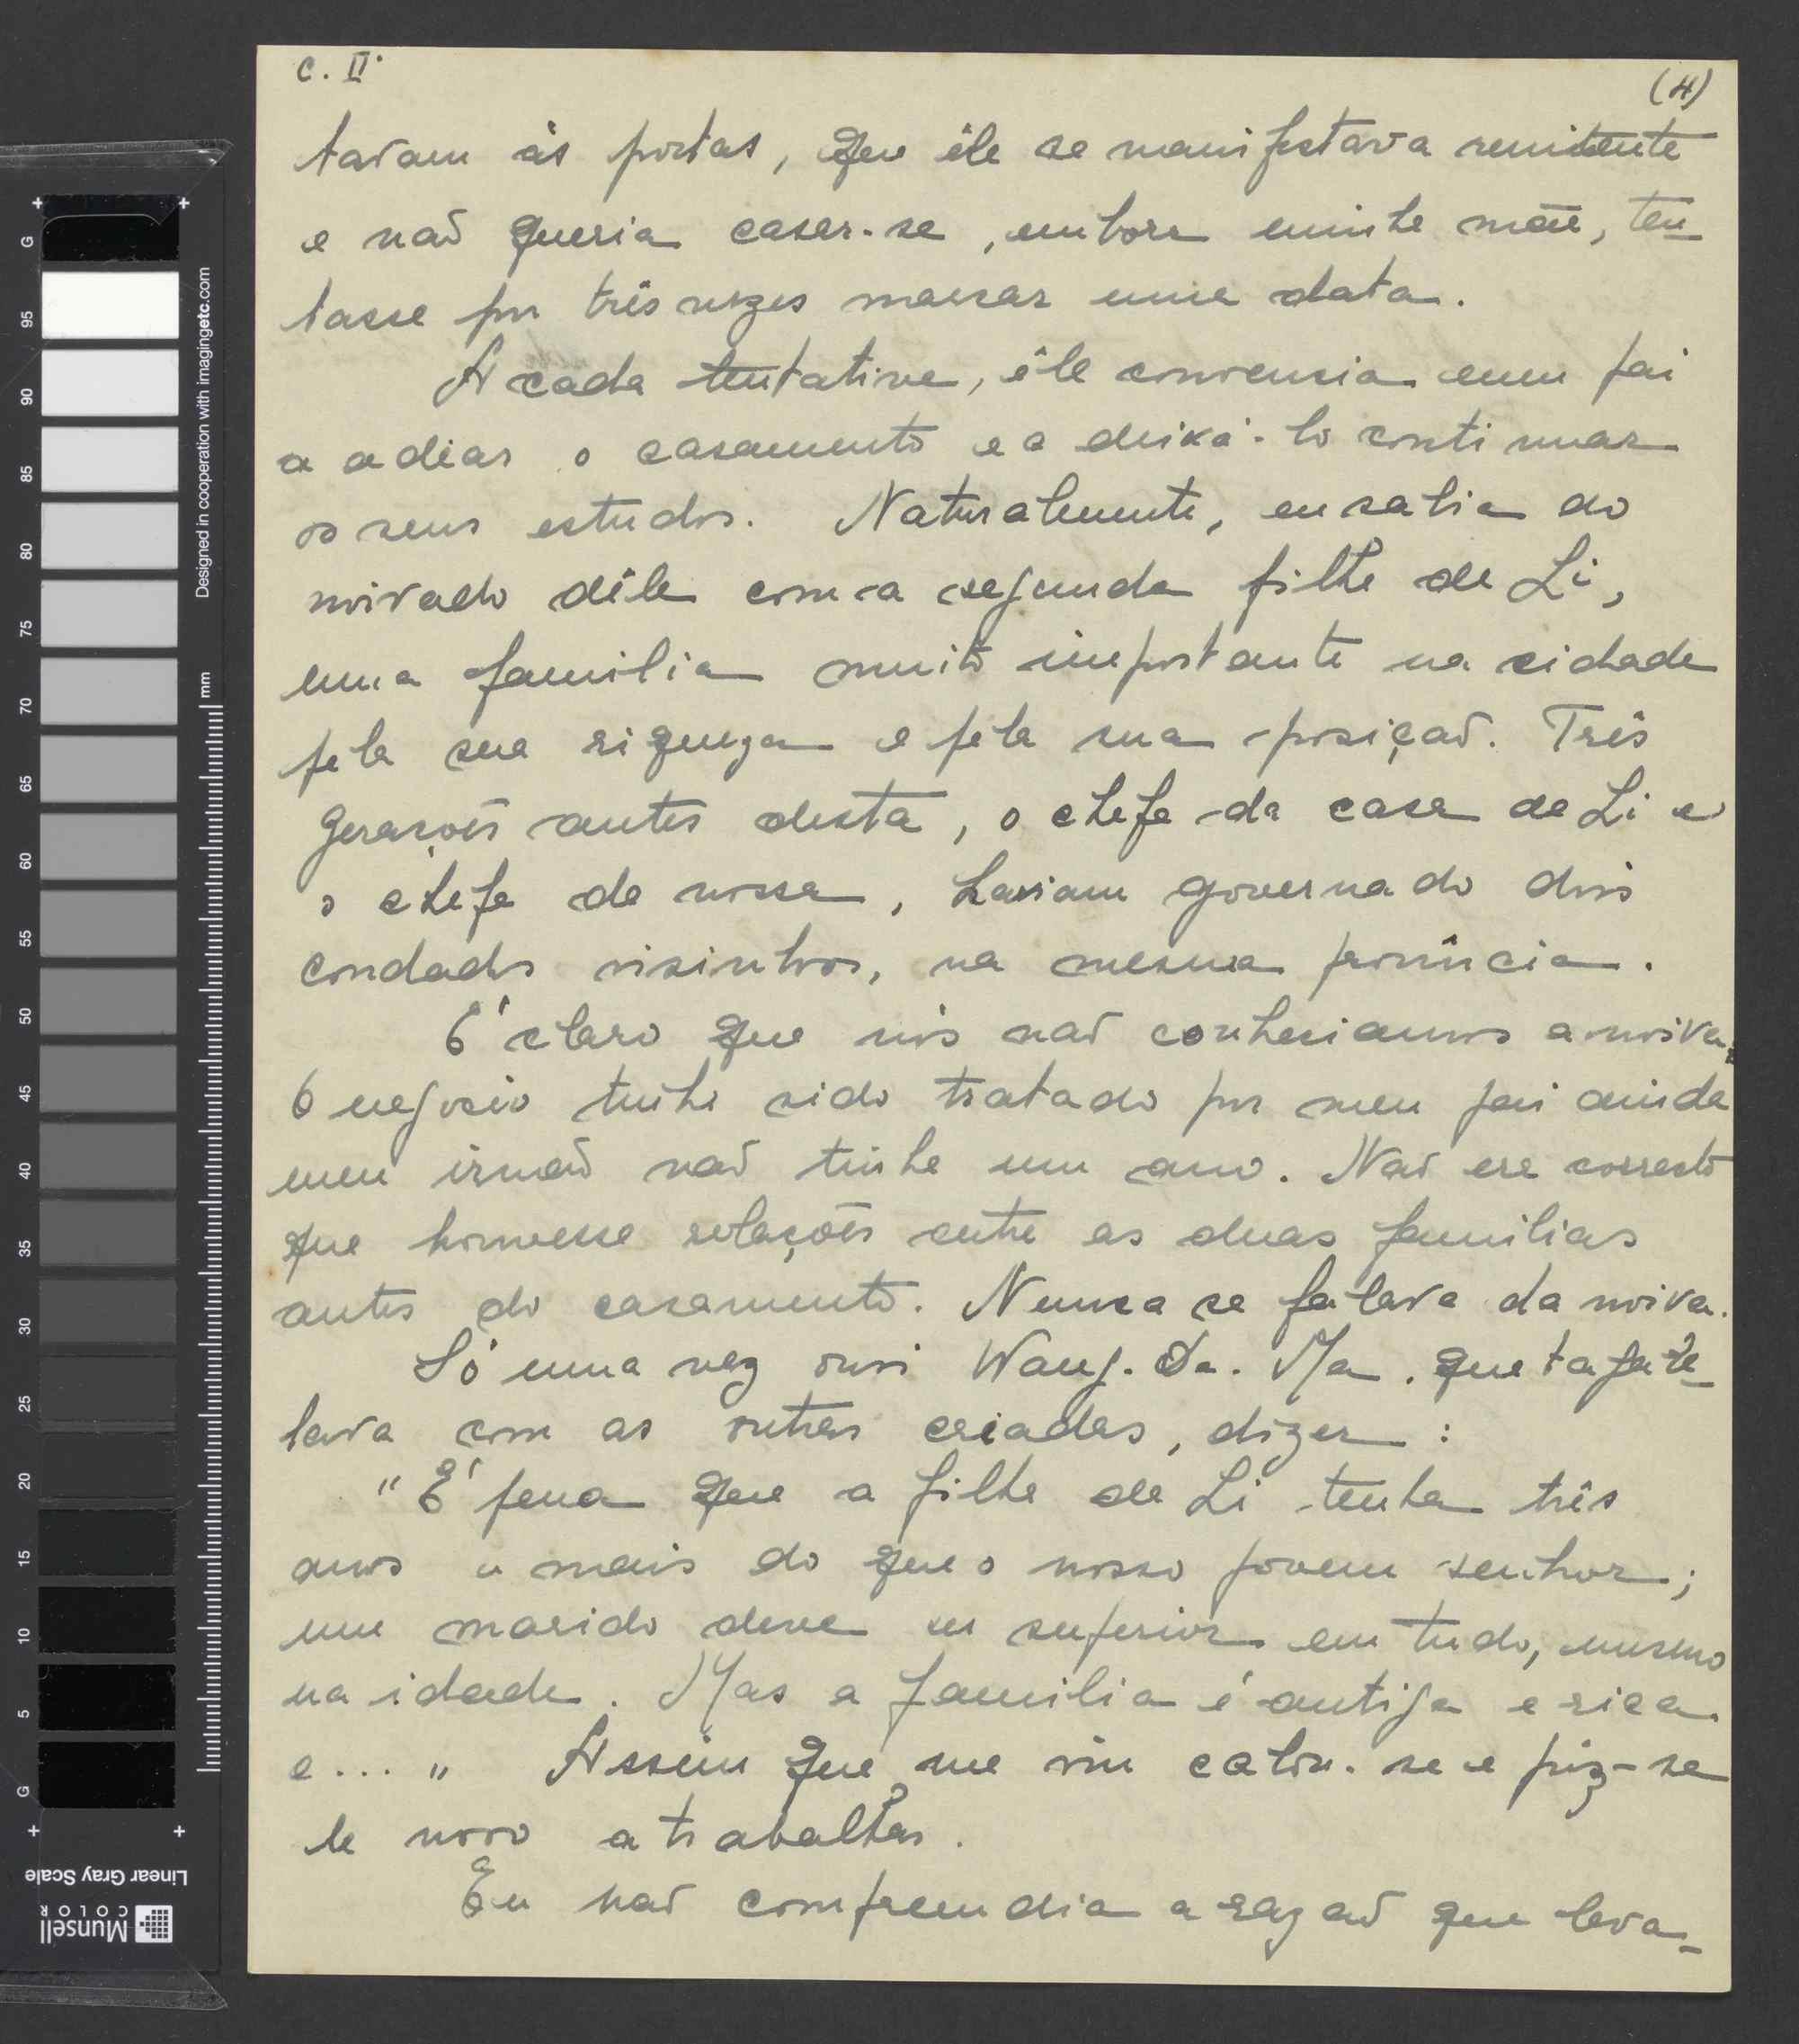 c. II.
(4)
tavam às portas, que êle se manifestava renitente
e não queria casar-se, embora minha mãe, ten-
tasse por três vezes marcar uma data.
A cada tentativa, êle convencia meu pai
a adiar o casamento e a deixá-lo continuar
os seus estudos. Naturalmente, eu sabia do
noivado dêle com a segunda filha de Li,
uma familia muito importante na cidade
pela sua riqueza e pela sua posição. Três
gerações antes desta, o chefe da casa de Li e
o chefe da nossa, haviam governado dois
condados visinhos, na mesma provincia.
E' claro que nós não conheciamos a noiva.
O negocio tinha sido tratado por meu pai ainda
meu irmão não tinha um ano. Não era correcto
que houvesse relações entre as duas familias
antes do casamento. Nunca se falava da noiva.
Só uma vez ouvi Wang-Da-Ma, que tagare-
lava com as outras criadas, dizer:
"E' pena que a filha de Li tenha três
anos a mais do que o nosso jovem senhor;
um marido deve ser superior em tudo, mesmo
na idade. Mas a familia é antiga e rica
e..." Assim que me viu calou-se e pôz-se
de novo a trabalhar.
Eu não compreendia a razão que leva-
G
95
90
85
80
75
70
65
60
55
50
45
40
35
30
25
20
15
10
5
G
mm
Designed in cooperation with imagingetc.com
Linear Gray Scale
Munsell
COLOR